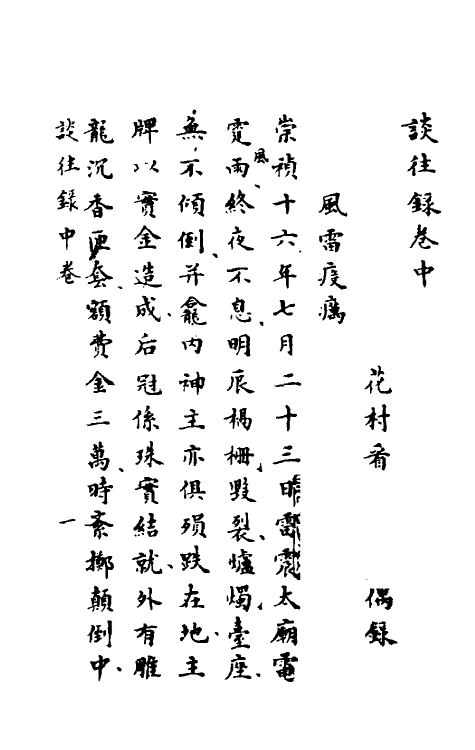 談往錄卷中
花村看　偶錄
風雷疫癘
崇禎十六年七月二十三日雷震太廟電
霓雨風終夜不息明辰槅柵毀裂爐燭臺座
無不傾倒并龕內神主亦俱殞跌在地主
牌以實金造成后冠係珠寶結就外有雕
龍沉香匣套額費金三萬時紊擲顛倒中
談往錄中卷　一